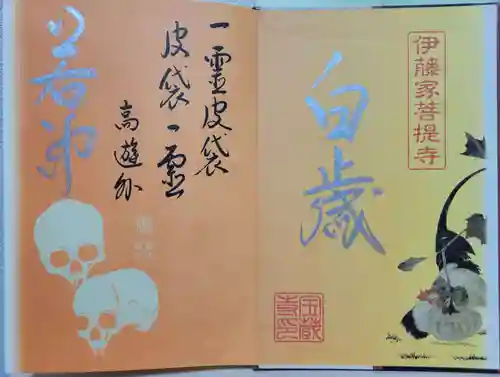 伊藤家菩提寺
白歳
宝蔵寺印
一霊皮袋
皮袋一霊
高遊外
若冲